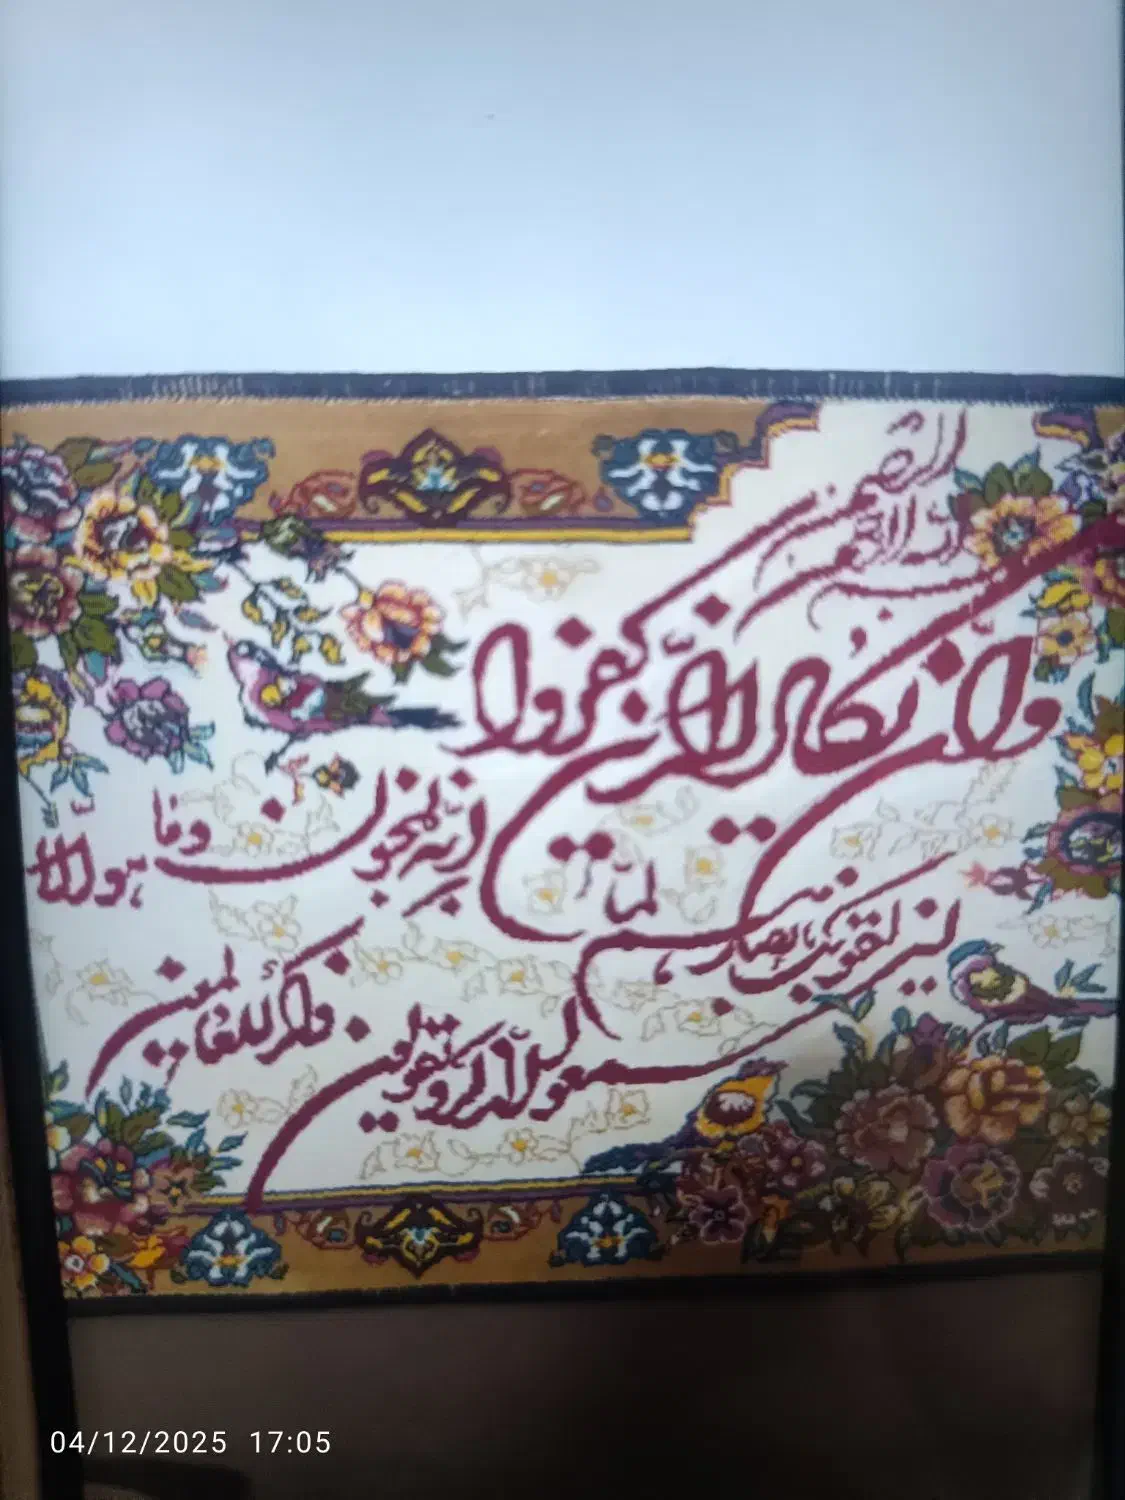 بسم الله الرحمن الرحیم
وان یکاد الذین کفروا
لیزلقونک بابصارهم لما
سمعوا الذکر و یقولون انه لمجنون و ما هو الا
ذکر للعالمین
04/12/2025 17:05